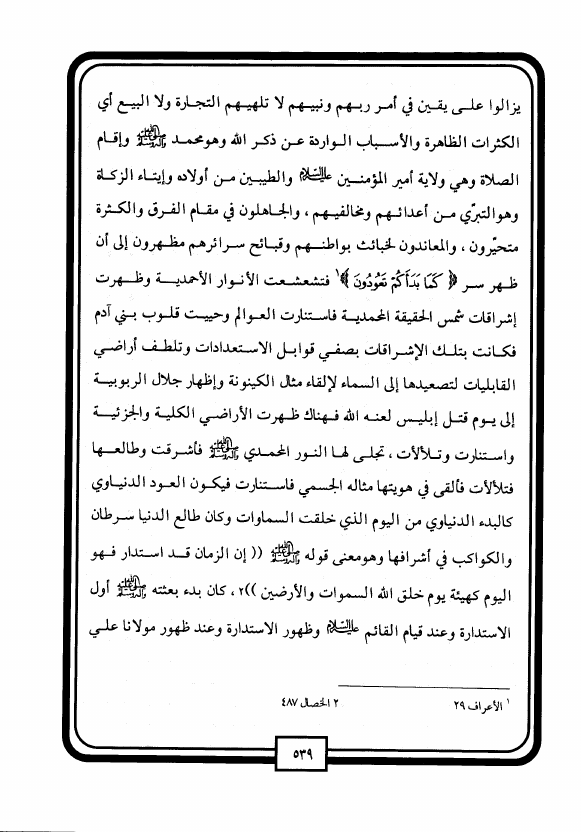 يزالوا على يقين في أمر ربهم ونبيهم لا تلهيهم التجارة ولا البيع أي
الكثرات الظاهرة والأسباب الواردة عن ذكر الله وهومحمد ﷺ وإقام
الصلاة وهي ولاية أمير المؤمنين عليه السلام والطيبين من أولاده وإيتاء الزكاة
وهوالتبرّي من أعدائهم ومخالفيهم ، والجاهلون في مقام الفرق والكثرة
متحيّرون ، والمعاندون لخبائث بواطنهم وقبائح سرائرهم مظهرون إلى أن
ظهر سر ﴿ كَمَا بَدَأَكُمْ تَعُودُونَ ﴾١ فتشعشعت الأنوار الأحمدية وظهرت
إشراقات شمس الحقيقة المحمدية فاستنارت العوالم وحييت قلوب بني آدم
فكانت بتلك الإشراقات بصفي قوابل الاستعدادات وتلطف أراضي
القابليات لتصعيدها إلى السماء لإلقاء مثال الكينونة وإظهار جلال الربوبية
إلى يوم قتل إبليس لعنه الله فهناك ظهرت الأراضي الكلية والجزئية
واستنارت وتلألأت ، تجلى لها النور المحمدي ﷺ فأشرقت وطالعها
فتلألات فألقى في هويتها مثاله الجسمي فاستنارت فيكون العود الدنياوي
كالبدء الدنياوي من اليوم الذي خلقت السماوات وكان طالع الدنيا سرطان
والكواكب في أشرافها وهومعنى قوله ﷺ (( إن الزمان قد استدار فهو
اليوم كهيئة يوم خلق الله السموات والأرضين ))٢ ، كان بدء بعثته ﷺ أول
الاستدارة وعند قيام القائم عليه السلام وظهور الاستدارة وعند ظهور مولانا علي
١ الأعراف ٢٩ ٢ الخصال ٤٨٧
٥٣٩